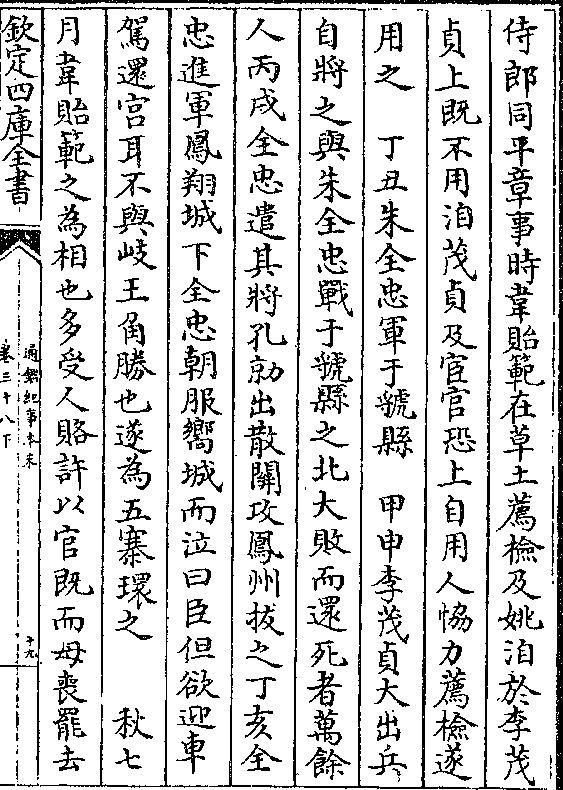 侍郎同平章事時韋貽範在草土薦檢及姚洎於李茂
貞上既不用洎茂貞及宦官恐上自用人恊力薦檢遂
用之　丁丑朱全忠軍于虢縣　甲申李茂貞大出兵
自將之與朱全忠戰于虢縣之北大敗而還死者萬餘
人丙戌全忠遣其將孔勍出散關攻鳳州拔之丁亥全
忠進軍鳳翔城下全忠朝服嚮城而泣曰臣但欲迎車
駕還宫耳不與岐王角勝也遂為五寨環之　秋七
月韋貽範之為相也多受人賂許以官既而母喪罷去
欽定四庫全書
通鑑紀事本末
卷三十八下
十九